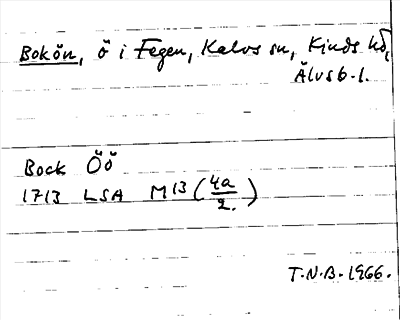 Bokön, ö i Fegen, Kalvs sn, Kinds hd,
Älvsb. l.
Bock Öö
1713 LSA M13 (4a/2.)
T.N.B. 1966.